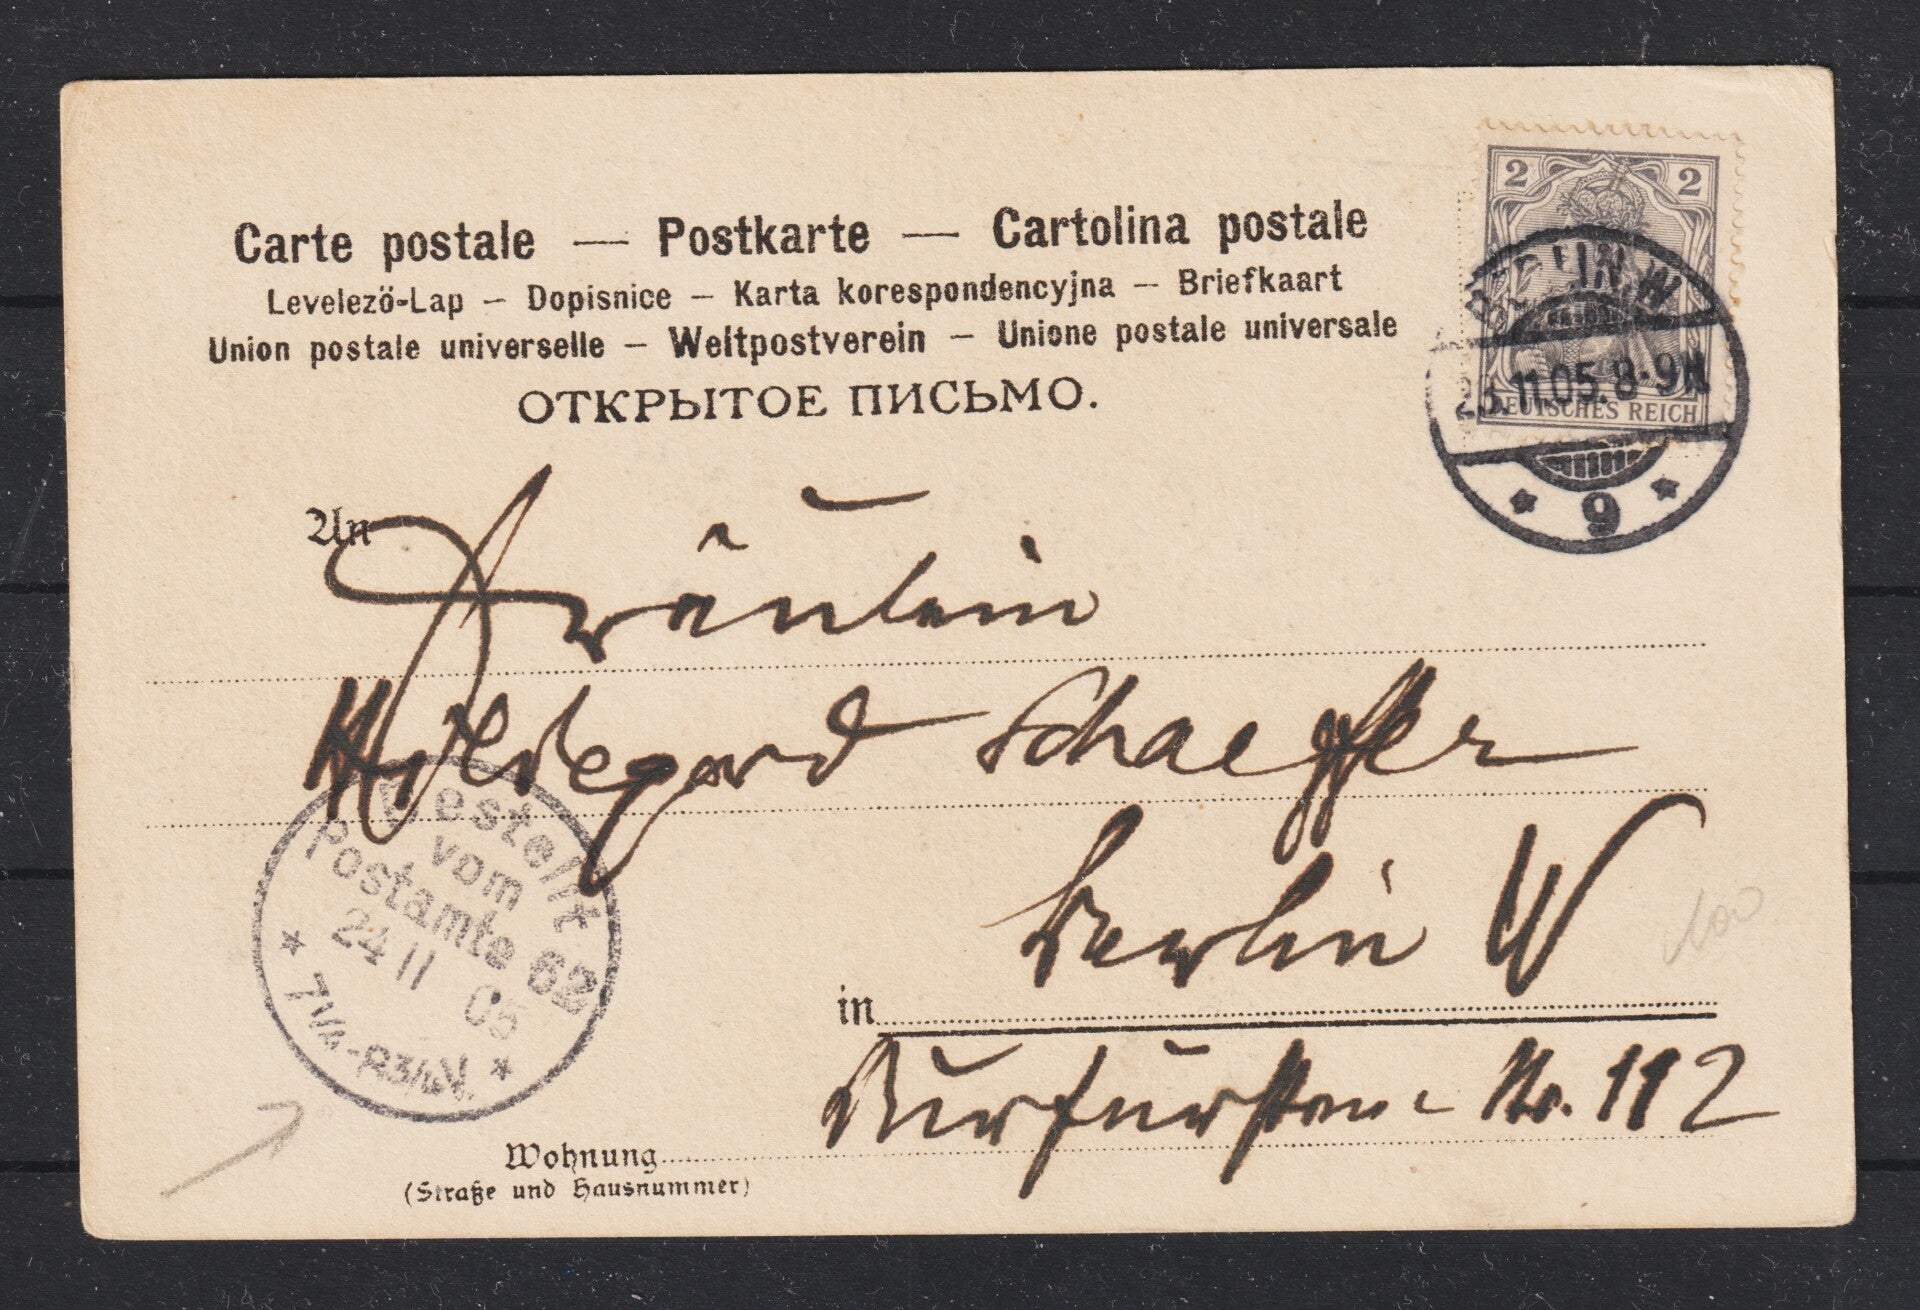 Carte postale — Postkarte — Cartolina postale
Levelező-Lap — Dopisnice — Karta korespondencyjna — Briefkaart
Union postale universelle — Weltpostverein — Unione postale universale
ОТКРЫТОЕ ПИСЬМО.
2 2
DEUTSCHES REICH
BERLIN.W
23.11.05.8-9N.
* 9 *
An Fräulein
Hildegard Schaeffer
in Berlin W
Kurfürsten - Nr. 112
Wohnung
(Straße und Hausnummer)
Bestellt
vom
Postamte 62
24 11 05
7 1/4 - 8 3/4 V.
100